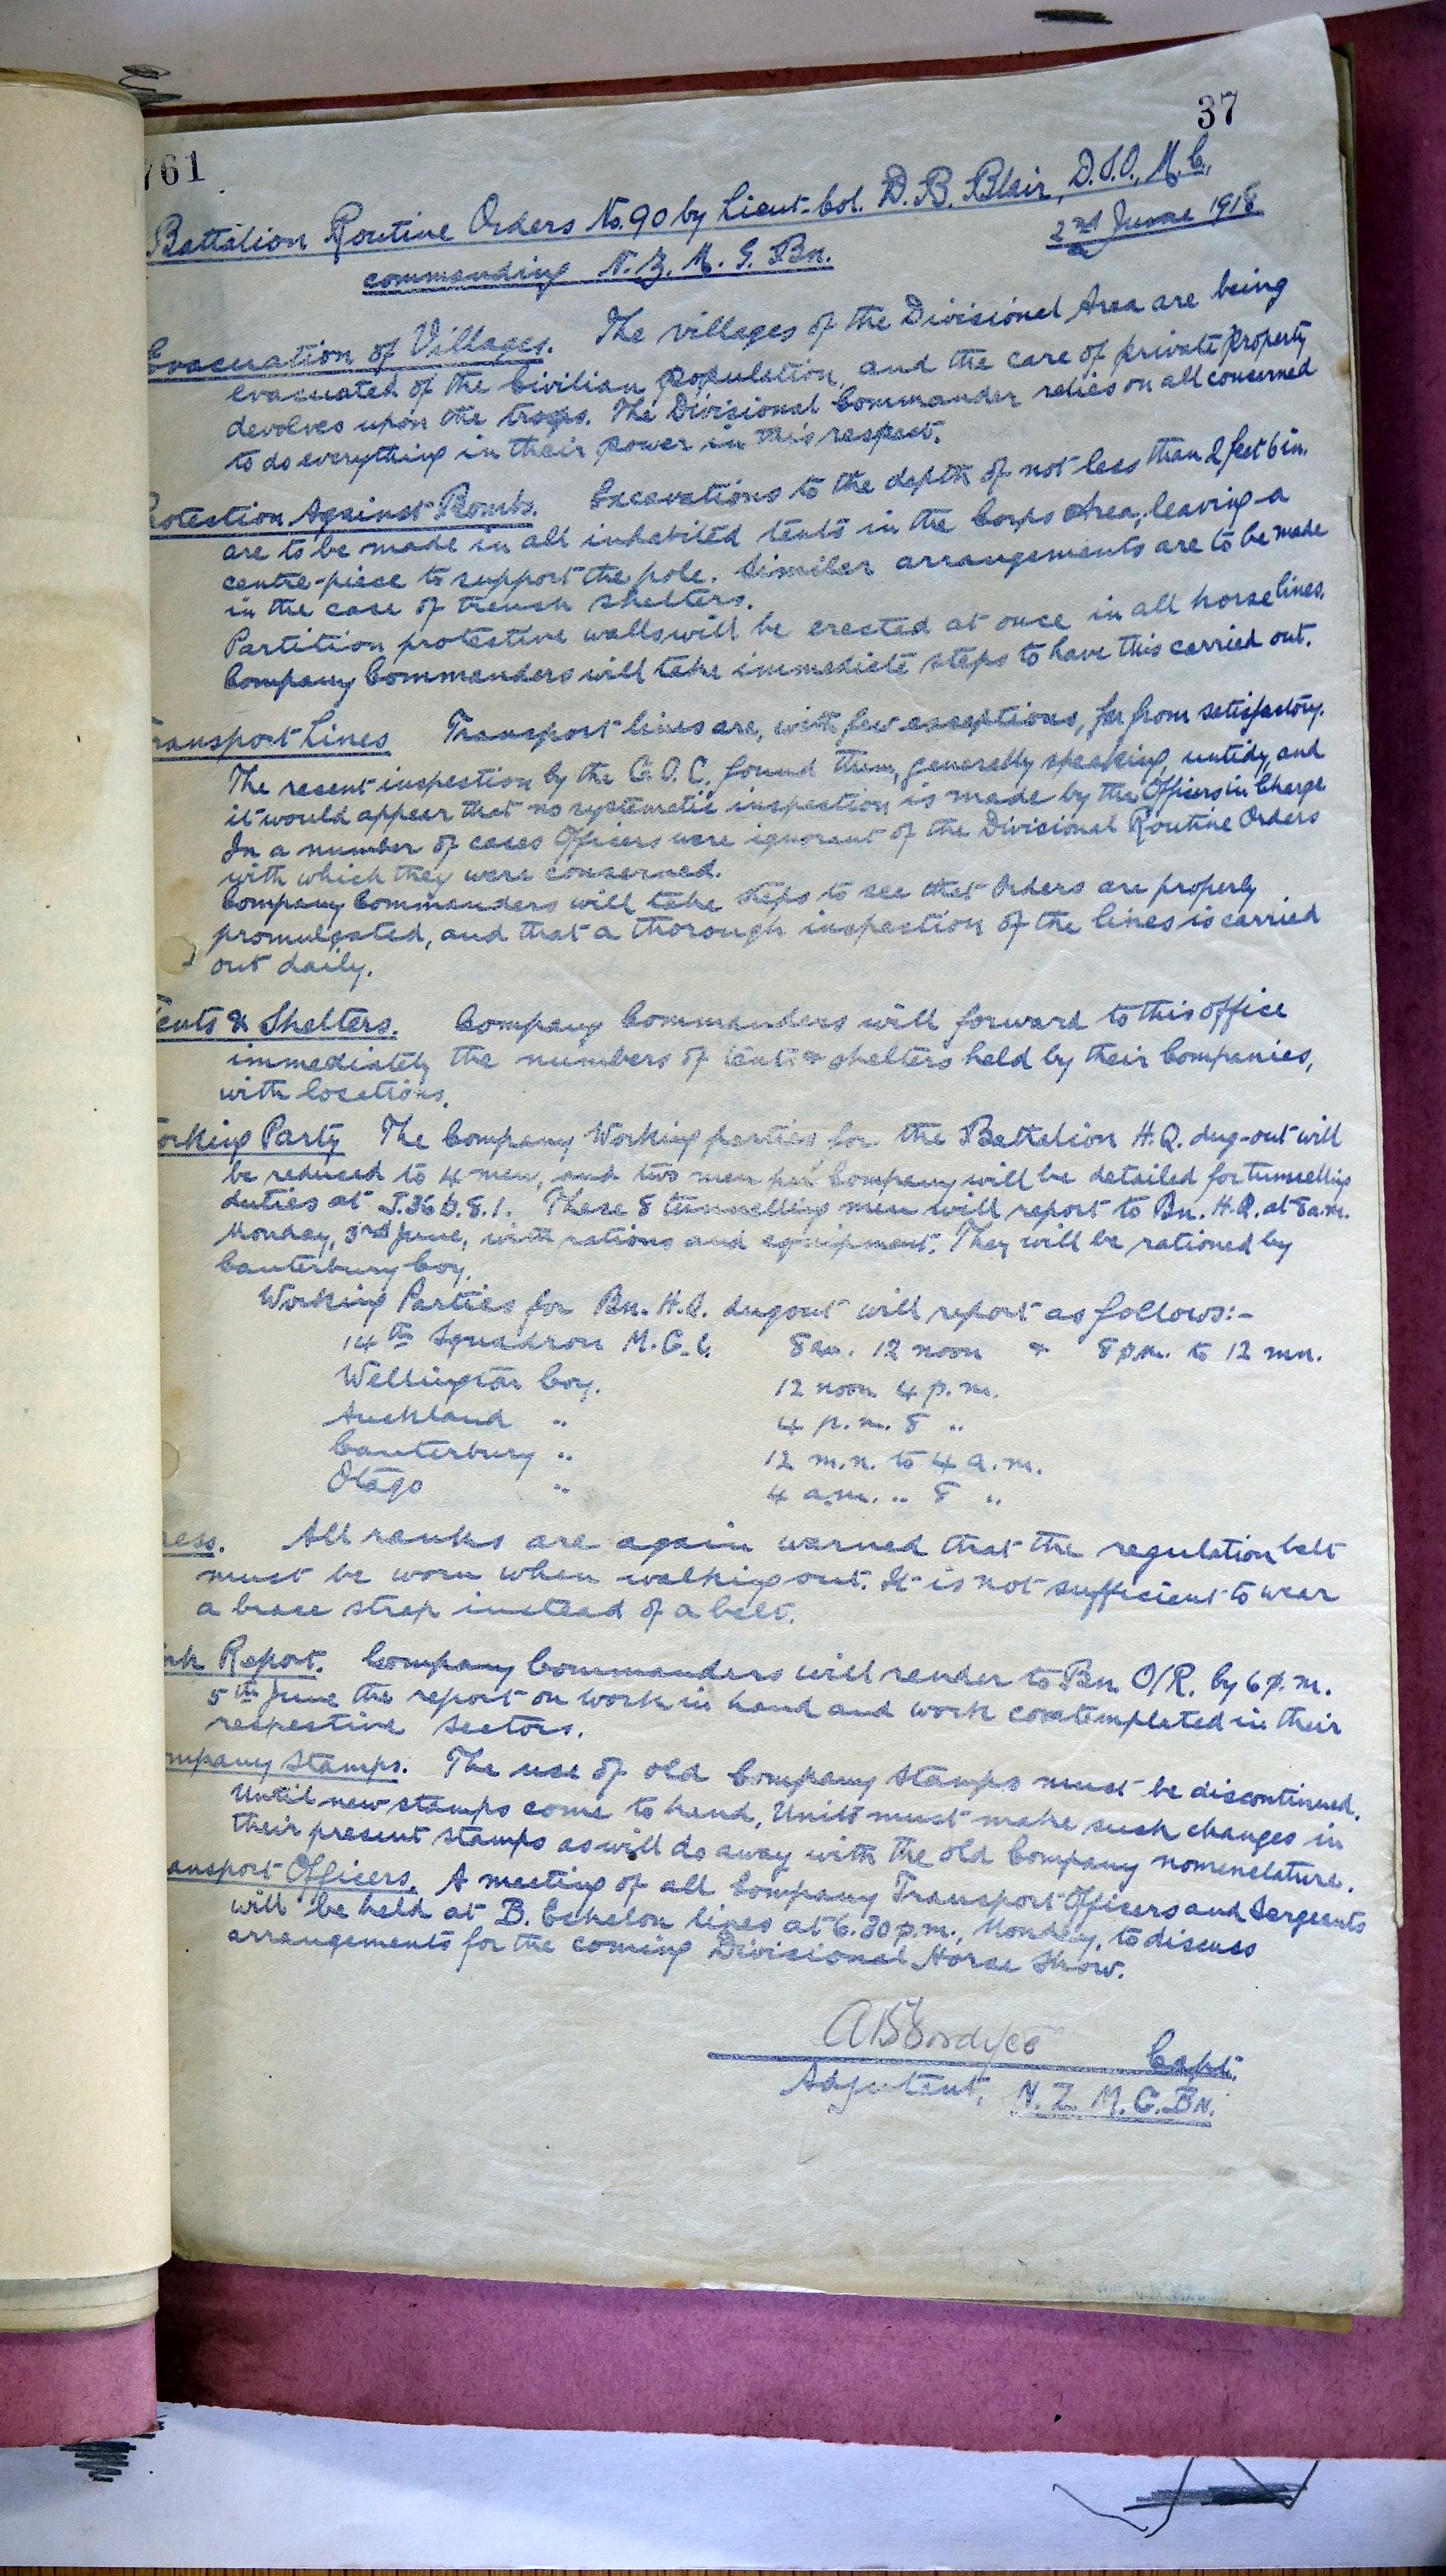 37
761
Battalion Routine Orders No. 90 by Lieut-Col. D. B. Blair, D.S.O., M.C.,
2nd June 1918
commanding N. Z. M. G. Bn.
Evacuation of Villages. The villages of the Divisional Area are being
evacuated of the Civilian population, and the care of private property
devolves upon the troops. The Divisional Commander relies on all concerned
to do everything in their power in this respect.
rotection Against Bombs. Excavations to the depth of not less than 2 feet 6 in.
are to be made in all inhabited tents in the Corps Area, leaving a
centre-piece to support the pole. Similar arrangements are to be made
in the case of trench shelters.
Partition protective walls will be erected at once in all horse lines.
Company Commanders will take immediate steps to have this carried out.
ransport Lines Transport lines are, with few exceptions, far from satisfactory.
The recent inspection by the G.O.C. found them, generally speaking, untidy, and
it would appear that no systematic inspection is made by the Officers in Charge
In a number of cases Officers were ignorant of the Divisional Routine Orders
with which they were concerned.
Company Commanders will take steps to see that Orders are properly
promulgated, and that a thorough inspection of the lines is carried
out daily.
Tents & Shelters. Company Commanders will forward to this office
immediately the numbers of tents & shelters held by their Companies,
with locations.
orking Party The Company Working parties for the Battalion H.Q. dug-out will
be reduced to 4 men, and two men per Company will be detailed for tunnelling
duties at J.36.b.8.1. These 8 tunnelling men will report to Bn. H.Q. at 8 a.m.
Monday, 3rd June, with rations and equipment. They will be rationed by
Canterbury Coy.
Working Parties for Bn. H.Q. dugout will report as follows:-
14th Squadron M.G.C. 8 am. 12 noon & 8 p.m. to 12 mn.
Wellington Coy. 12 noon 4 p.m.
Auckland " 4 p.m. 8 "
Canterbury " 12 m.n. to 4 a.m.
Otago " 4 a.m. " 8 "
ress. All ranks are again warned that the regulation belt
must be worn when walking out. It is not sufficient to wear
a brace strap instead of a belt.
ork Report. Company Commanders will render to Bn. O/R. by 6 p.m.
5th June the report on work in hand and work contemplated in their
respective sectors.
ompany Stamps. The use of old Company Stamps must be discontinued.
Until new stamps come to hand, Units must make such changes in
their present stamps as will do away with the old Company nomenclature.
ansport Officers. A meeting of all Company Transport Officers and Sergeants
will be held at B. Echelon lines at 6.30 p.m., Monday, to discuss
arrangements for the coming Divisional Horse Show.
Capt.
Adjutant, N. Z. M. G. Bn.